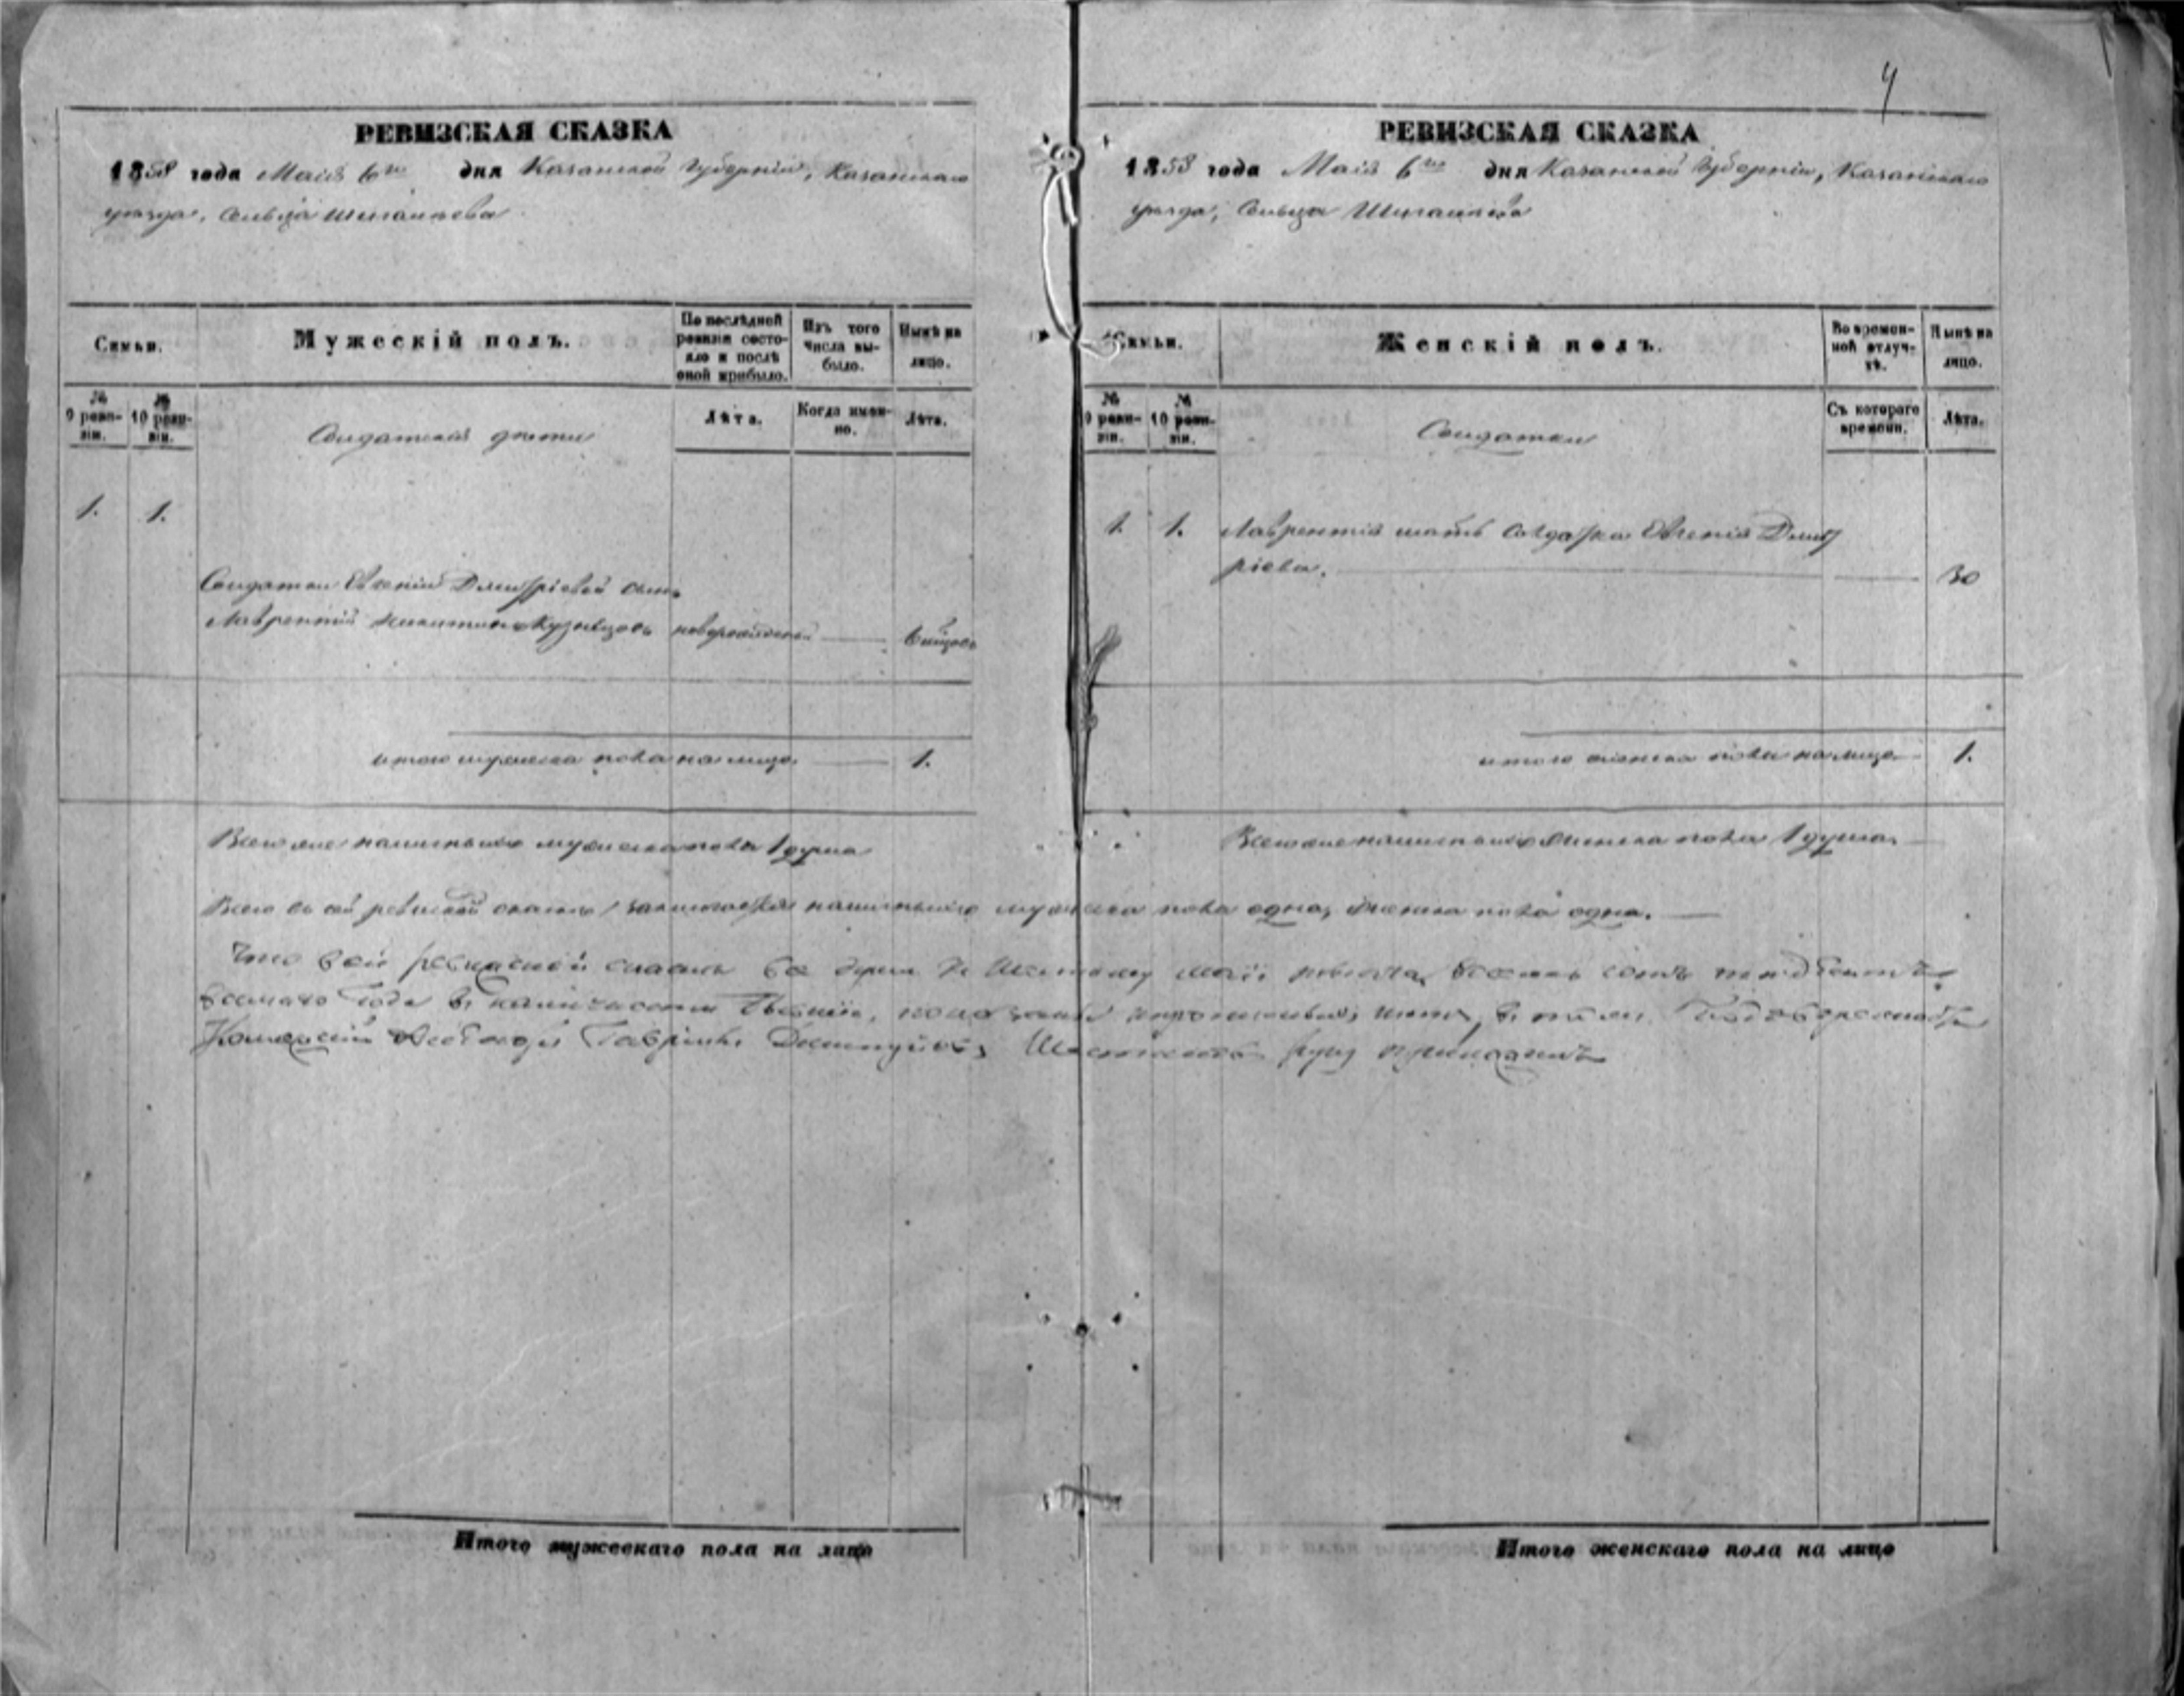 4
РЕВИЗСКАЯ СКАЗКА
1858 года Маія 6го дня Казанской Губерніи, Казанскаго
уѣзда, Сельца Шигалѣева
Семьи.
Мужескій полъ.
По послѣдней ревизіи состояло и послѣ оной прибыло.
Изъ того числа выбыло.
Нынѣ на лицо.
№ 9 ревизіи.
№ 10 ревизіи.
Солдатскія дѣти
Лѣта.
Когда именно.
Лѣта.
1. 1.
Солдатки Евгеніи Дмитріевой сынъ
Лаврентій Никитинъ Кузнецовъ новорожденный 6 мѣсяц
итого мужеска пола на лицо 1.
Всего же наличныхъ мужеска пола 1 душа
РЕВИЗСКАЯ СКАЗКА
1858 года Маія 6го дня Казанской Губерніи, Казанскаго
уѣзда, Сельца Шигалѣева
Семьи.
Женскій полъ.
Во временной отлучкѣ.
Нынѣ на лицо.
№ 9 ревизіи.
№ 10 ревизіи.
Солдатки
Съ котораго времени.
Лѣта.
1. 1. Лаврентія мать солдатка Евгенія Дмит
ріева. 30
итого женска пола на лицо 1.
Всего же наличныхъ женска пола 1 душа
Всего въ сей ревизской сказкѣ заключается наличныхъ мужеска пола одна, женска пола одна.
Что въ сей ревизской сказкѣ всѣ души къ Шестому маія
года въ
руку приложилъ
Итого мужескаго пола на лицо
Итого женскаго пола на лицо